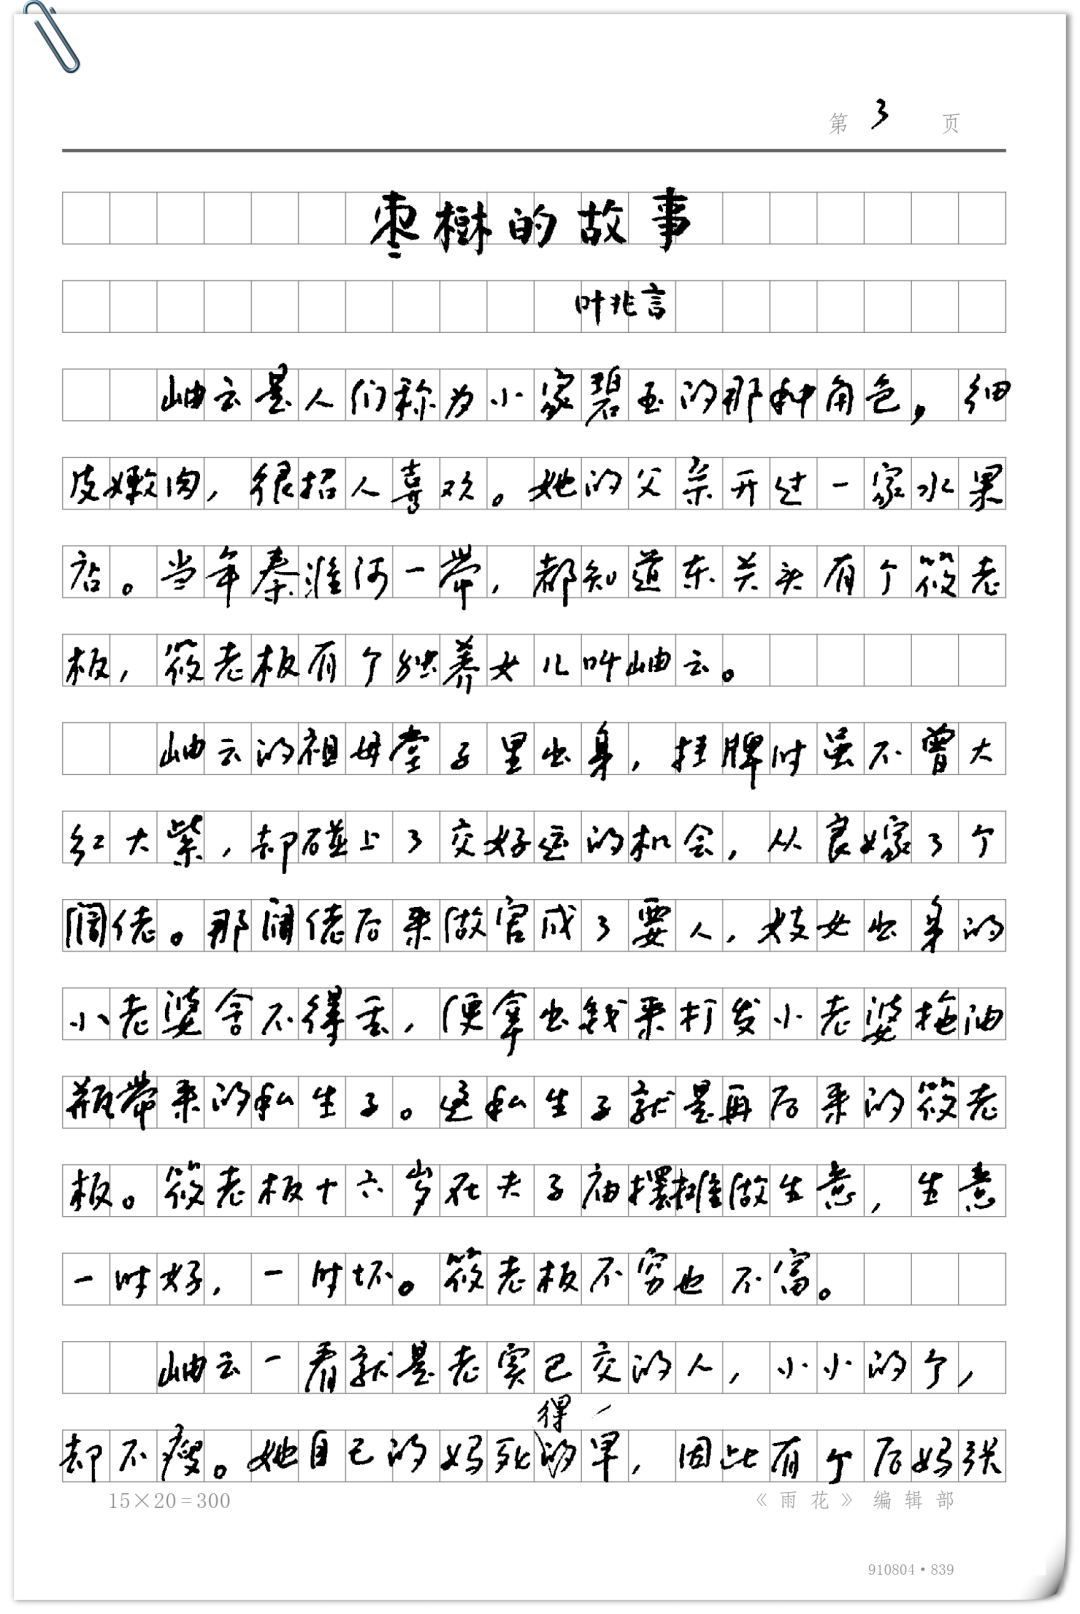 第 3 页
枣树的故事
叶兆言
岫云是人们称为小家碧玉的那种角色，细
皮嫩肉，很招人喜欢。她的父亲开过一家水果
店。当年秦淮河一带，都知道东关头有个筱老
板，筱老板有个独养女儿叫岫云。
岫云的祖母堂子里出身，挂牌时虽不曾大
红大紫，却碰上了交好运的机会，从良嫁了个
阔佬。那阔佬后来做官成了要人，妓女出身的
小老婆舍不得丢，便拿出钱来打发小老婆拖油
瓶带来的私生子。这私生子就是再后来的筱老
板。筱老板十六岁在夫子庙摆摊做生意，生意
一时好，一时坏。筱老板不穷也不富。
岫云一看就是老实巴交的人，小小的个，
得
却不瘦。她自己的妈死的早，因此有个后妈。张
15×20=300
《雨花》编辑部
910804·839